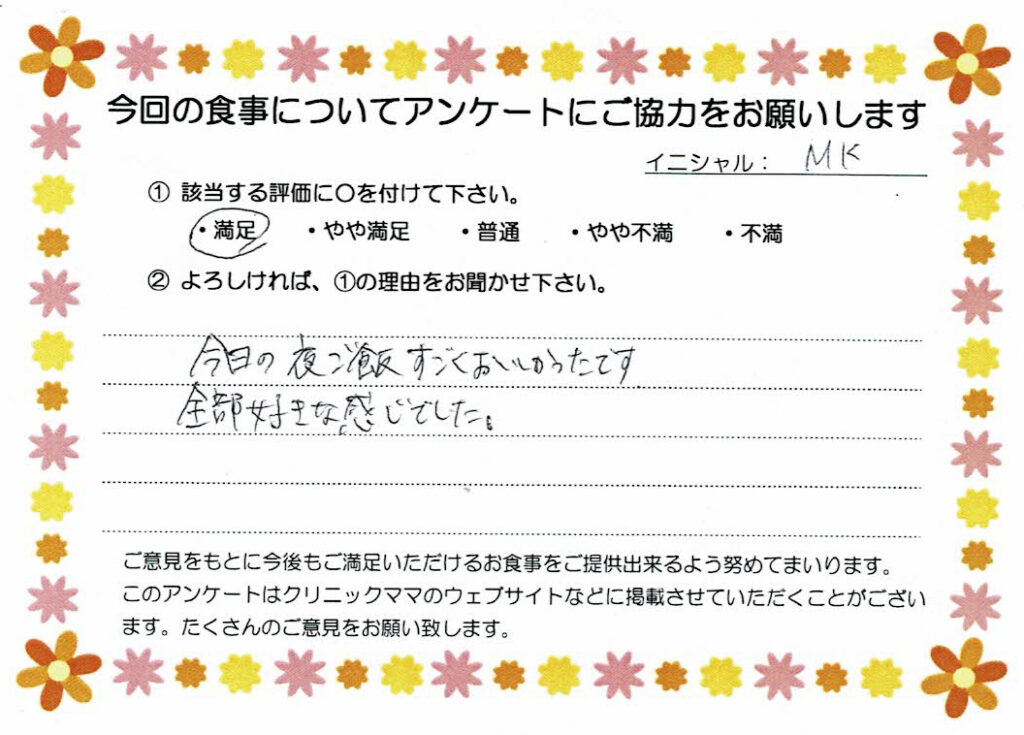 今回の食事についてアンケートにご協力をお願いします
イニシャル： MK
① 該当する評価に〇を付けて下さい。
・満足 ・やや満足 ・普通 ・やや不満 ・不満
② よろしければ、①の理由をお聞かせ下さい。
今日の夜ご飯すごくおいしかったです
全部好きな感じでした。
ご意見をもとに今後もご満足いただけるお食事をご提供出来るよう努めてまいります。
このアンケートはクリニックママのウェブサイトなどに掲載させていただくことがござい
ます。たくさんのご意見をお願い致します。